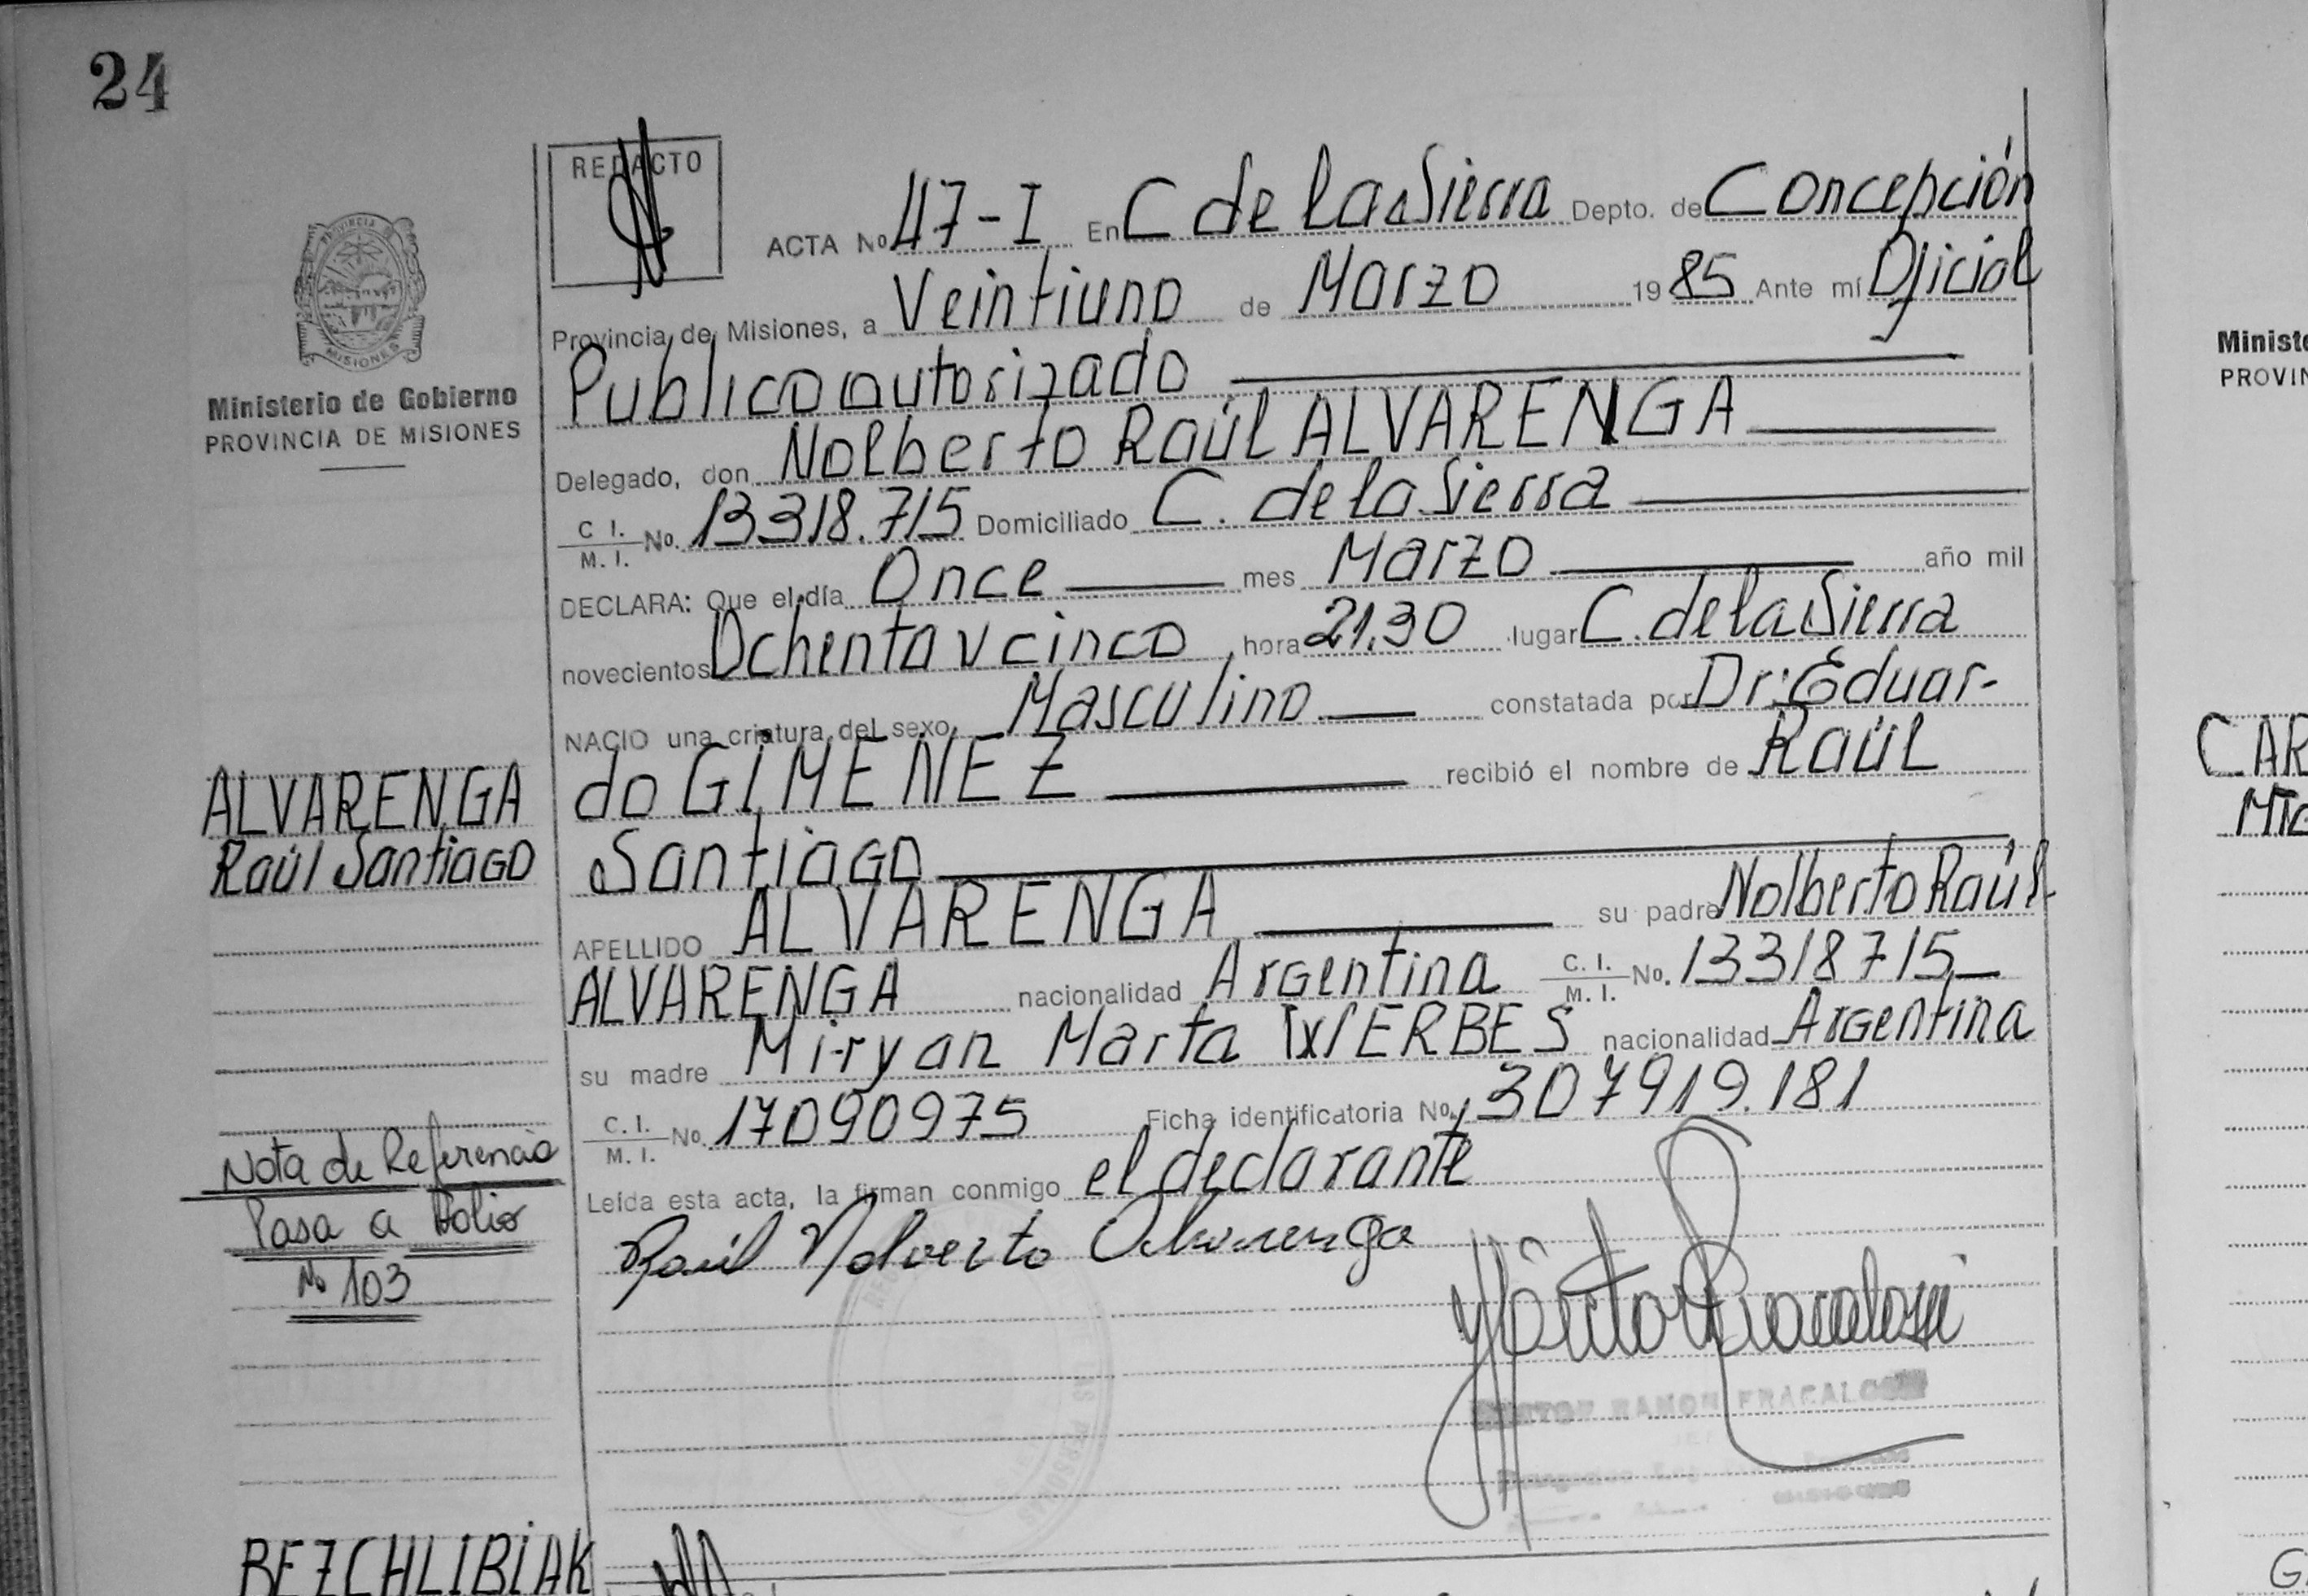 24
REDACTO
ACTA Nº 47-I En C de la Sierra Depto. de Concepción
Provincia de Misiones, a Veintiuno de Marzo 1985 Ante mí Oficial
Publico autorizado
Delegado, don Nolberto Raúl ALVARENGA
C. I. / M. I. No. 13318.715 Domiciliado C. de la Sierra
DECLARA: Que el día Once mes Marzo año mil
novecientos Ochenta y cinco hora 21,30 lugar C. de la Sierra
NACIO una criatura del sexo Masculino constatada por Dr: Eduar-
do GIMENEZ recibió el nombre de Raúl
Santiago
APELLIDO ALVARENGA su padre Nolberto Raúl
ALVARENGA nacionalidad Argentina C. I. / M. I. No. 13318715
su madre Miryan Marta WERBES nacionalidad Argentina
C. I. / M. I. No. 17090975 Ficha identificatoria No. 307919.181
Leída esta acta, la firman conmigo el declarante
Raúl Nolverto Alvarenga
RAMON FRACALOSSI
PROVINCIA DE
MISIONES
Ministerio de Gobierno
PROVINCIA DE MISIONES
ALVARENGA
Raúl Santiago
Nota de Referencia
Pasa a Folio
Nº 103
BEZCHLIBIAK
Ministe
PROVIN
CAR